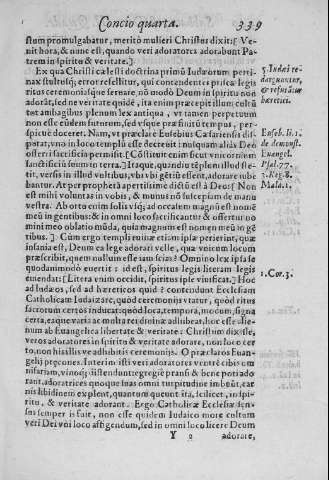 Concio quarta. 339
stum promulgabatur, meritò mulieri Christus dixit: [Ve-
nit hora, & nunc est, quando veri adoratores adorabunt Pa-
trem in spiritu & veritate.]
Ex qua Christi cælesti doctrina primũ Iudæorum perti-
nax stultusq; error refellitur, qui contendentes priscæ legis
ritus ceremoniasque seruare, nõ modò Deum in spiritu non
adorãt, sed ne veritate quidẽ, ita enim præcepit illum cultũ
tot ambagibus plenum lex antiqua, vt tamen perpetuum
non esse eũdem futurum, sed vsque præfinitũ tempus, pers-
picuè doceret. Nam, vt præclarè Eusebius Cæsariensis dis-
putat, vno in loco templũ esse decreuit: in alijs Deo
offerri sacrificia permisit.
tit, versis in illud vultibus, vbi vbi gẽtiũ essent, adorare iube
bantur. At per prophetã apertissimè dictũ est à Deo: [Non
est mihi voluntas in vobis, & munus nõ suscipiam de manu
vestra. Ab ortu enim solis vsq; ad occasum magnũ est nomẽ
meũ in gentibus: & in omni loco sacrificatur & offertur no
mini meo oblatio mũda, quia magnum est nomen meũ in gẽ
tibus.] Cùm ergo templi ruinæ etiam ipsæ perierint, quæ
insania est, Deum ea lege adorari velle, quæ vnicum locum
præscribit, quem nullum esse iam scias? Omnino lex ipsa se
quodammodò euertit: id est, spiritus legis literam legis
emendat: [Litera enim occidit, spiritus ipse viuificat.] Hoc
ad Iudæos, sed ad hæreticos quid? contendunt Ecclesiam
Catholicam Iudaizare, quòd ceremonijs vtatur, quòd ritus
sacrorum certos inducat: quòd loca, tempora, modum, signa
certa, eaque vatia ac multa rei diuinæ adhibeat, hoc esse alie-
num ab Euangelica libertate & veritate: Christum dixisse,
veros adoratores in spiritu & veritate adorare, non loco cer
to, non his illis ve adhibitis ceremonijs. O præclaros Euan-
gelij præcones. Interim isti veri adoratores ventrẽ cibis om
nifariam, vinoq; distendunt egregiè prãsi & bene poti ado
rant, adoratrices quoque suas omni turpitudine imbuũt, car
nis libidinem explent, quantum queunt ita, scilicet, in spi-
ritu, & veritate adorant. Ergo Catholicæ Ecclesiæ sen-
sus semper is fuit, non esse quidem Iudaico more cultum
veri Dei vni loco astrigendum, sed in omni loco licere Deum
Y 2 adorare,
hæretici.
Euseb. li. 1.
de demonst.
Euangel.
Psal. 77.
3. Reg. 8.
Mala. 1.
2. Cor. 3.